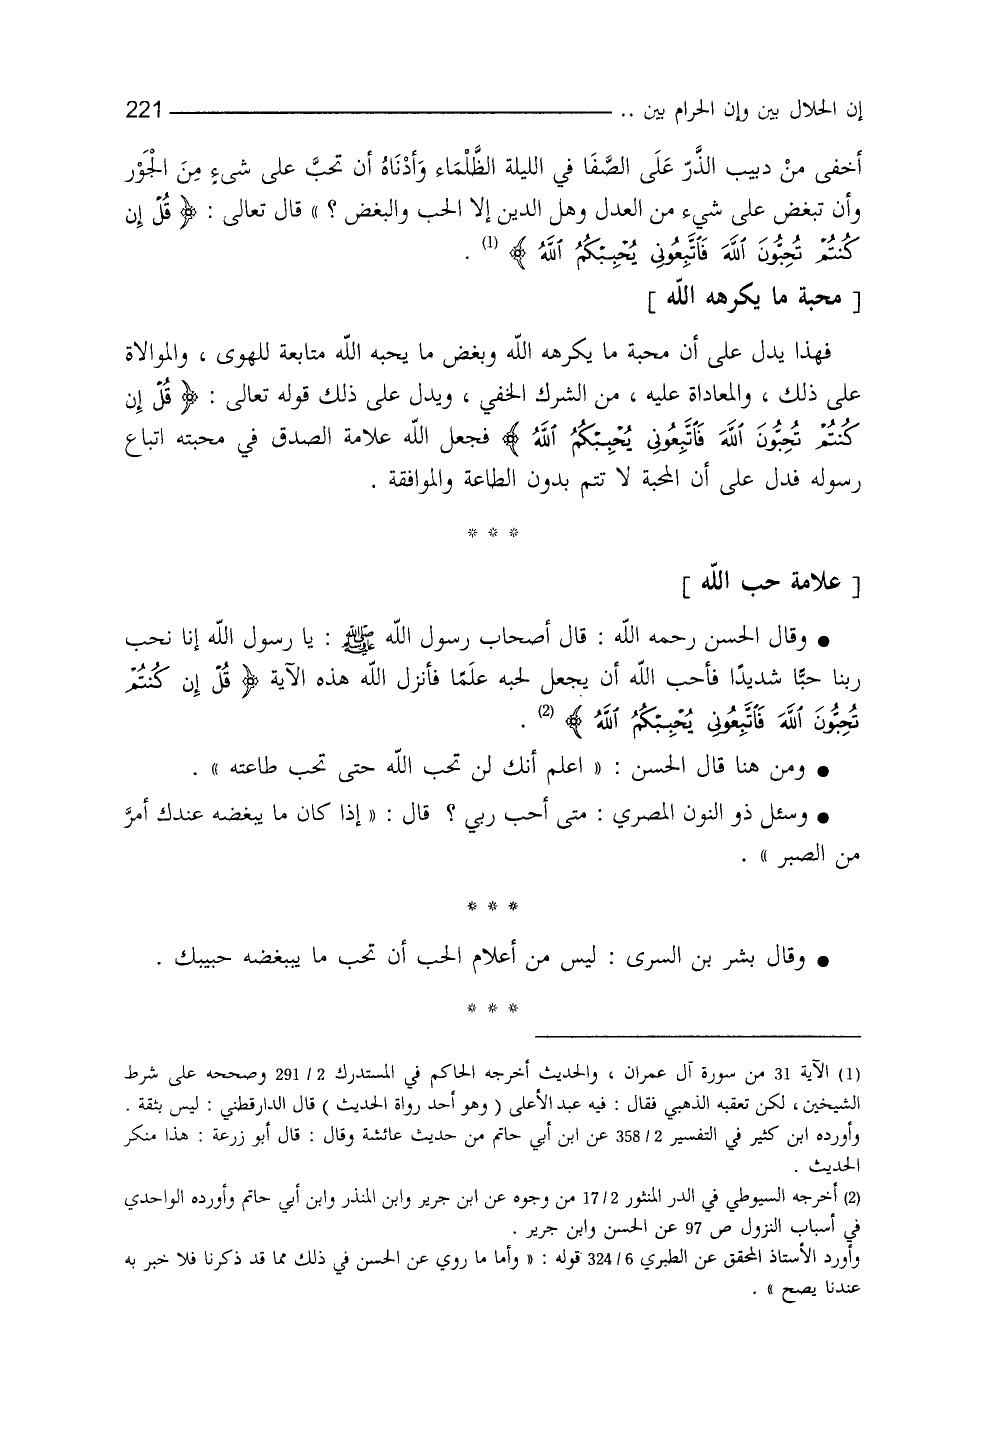 إن الحلال بين وإن الحرام بين .. 221
أخفى منْ دبيب الذَّرّ عَلَى الصَّفَا في الليلة الظَّلْمَاء وَأدْنَاهُ أن تحبَّ على شىءٍ مِنَ الْجَوْر
وأن تبغض على شيء من العدل وهل الدين إلا الحب والبغض ؟ » قال تعالى : ﴿ قُلْ إِن
كُنتُمْ تُحِبُّونَ ٱللَّهَ فَٱتَّبِعُونِى يُحْبِبْكُمُ ٱللَّهُ ﴾ (1) .
[ محبة ما يكرهه اللّه ]
فهذا يدل على أن محبة ما يكرهه اللّه وبغض ما يحبه اللّه متابعة للهوى ، والموالاة
على ذلك ، والمعاداة عليه ، من الشرك الخفي ، ويدل على ذلك قوله تعالى : ﴿ قُلْ إِن
كُنتُمْ تُحِبُّونَ ٱللَّهَ فَٱتَّبِعُونِى يُحْبِبْكُمُ ٱللَّهُ ﴾ فجعل اللّه علامة الصدق في محبته اتباع
رسوله فدل على أن المحبة لا تتم بدون الطاعة والموافقة .
* * *
[ علامة حب اللّه ]
● وقال الحسن رحمه اللّه : قال أصحاب رسول اللّه ﷺ : يا رسول اللّه إنا نحب
ربنا حبًّا شديدًا فأحب اللّه أن يجعل لحبه علَمًا فأنزل اللّه هذه الآية ﴿ قُلْ إِن كُنتُمْ
تُحِبُّونَ ٱللَّهَ فَٱتَّبِعُونِى يُحْبِبْكُمُ ٱللَّهُ ﴾ (2) .
● ومن هنا قال الحسن : « اعلم أنك لن تحب اللّه حتى تحب طاعته » .
● وسئل ذو النون المصري : متى أحب ربي ؟ قال : « إذا كان ما يبغضه عندك أمرَّ
من الصبر » .
* * *
● وقال بشر بن السرى : ليس من أعلام الحب أن تحب ما يببغضه حبيبك .
* * *
(1) الآية 31 من سورة آل عمران ، والحديث أخرجه الحاكم في المستدرك 2 / 291 وصححه على شرط
الشيخين ، لكن تعقبه الذهبي فقال : فيه عبد الأعلى ( وهو أحد رواة الحديث ) قال الدارقطني : ليس بثقة .
وأورده ابن كثير في التفسير 2 / 358 عن ابن أبي حاتم من حديث عائشة وقال : قال أبو زرعة : هذا منكر
الحديث .
(2) أخرجه السيوطي في الدر المنثور 2 / 17 من وجوه عن ابن جرير وابن المنذر وابن أبي حاتم وأورده الواحدي
في أسباب النزول ص 97 عن الحسن وابن جرير .
وأورد الأستاذ المحقق عن الطبري 6 / 324 قوله : « وأما ما روي عن الحسن في ذلك مما قد ذكرنا فلا خبر به
عندنا يصح » .